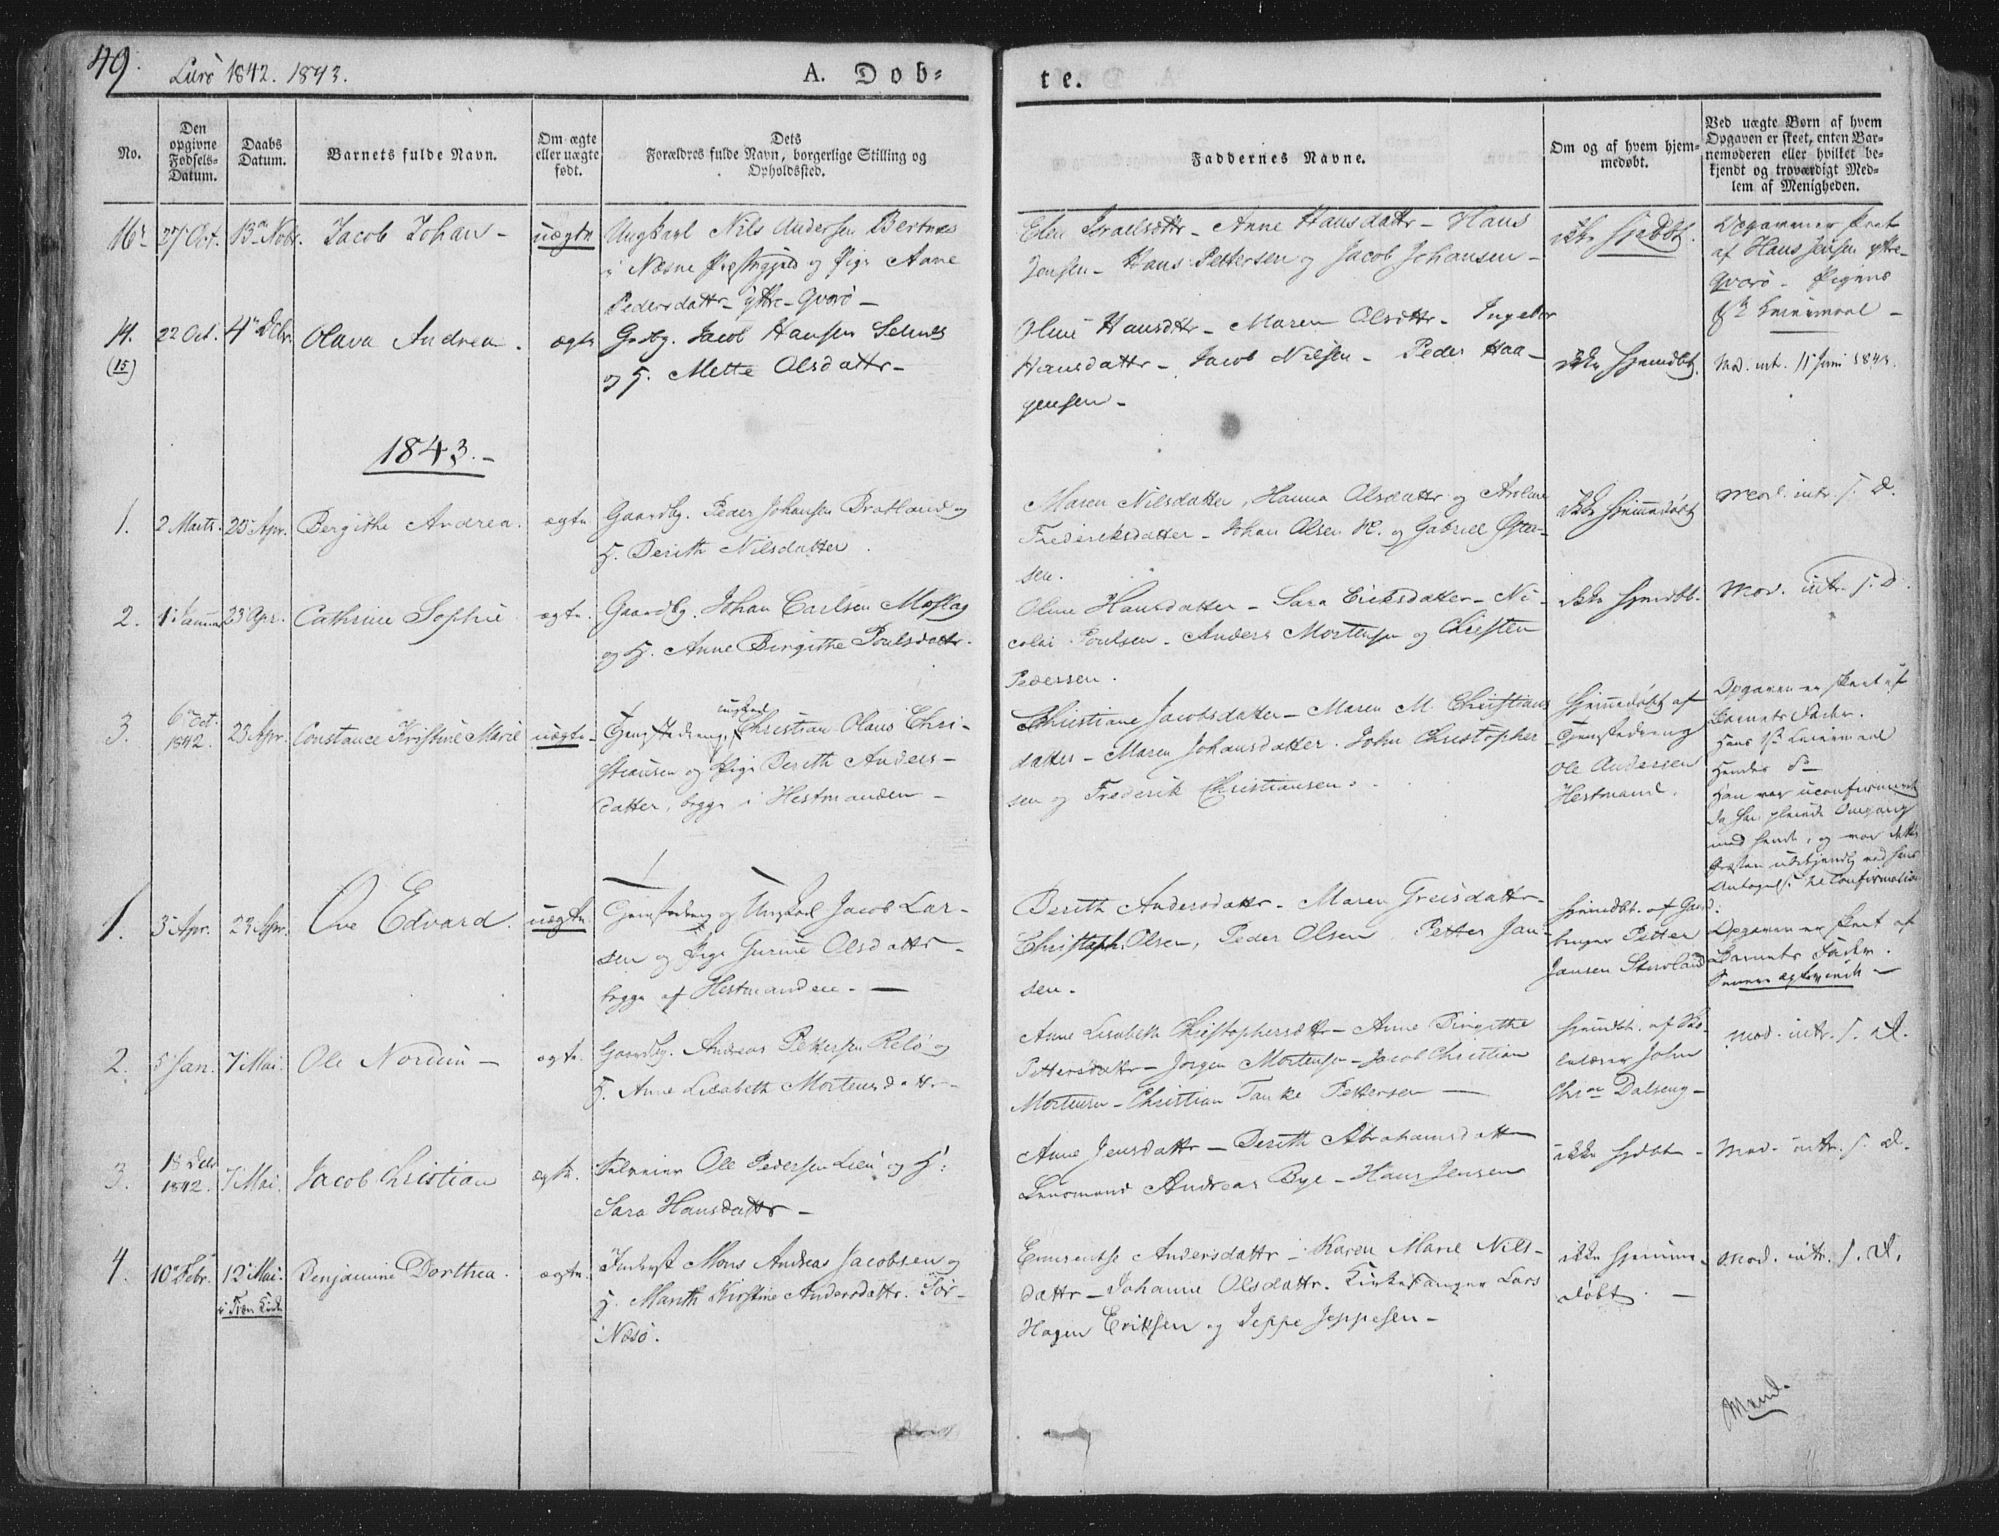 49.
Lurö 1842. 1843.
A. Dob=
te.
No.
Den opgivne Fødsels-Datum.
Daabs Datum.
Barnets fulde Navn.
Om ægte eller uægte født.
Dets
Forældres fulde Navn, borgerlige Stilling og
Opholdssted.
Faddernes Navne.
Om og af hvem hjem-
medøbt.
Ved uægte Børn af hvem
Opgaven er skeet, enten Bar-
nemoderen eller hvilket be-
kjendt og troværdigt Med-
lem af Menigheden.
16. 27 Oct. 13 Nobr. Jacob Johan – uægte
Ungkarl Nils Andersen Bertnes
i Næsne Præstegjeld og Pige Anne
Pedersdattr – Yttre-Qvarö –
Elen Israelsdttr – Anne Hansdattr – Hans
Jensen – Hans Pettersen og Jacob Johansen –
ikke hjdöbt.
Opgaven er skeet
af Hans Jensen Yttre-
Qvarö – Pigens
1ste Leiermaal –
14. (15) 22 Oct. 4 Debr. Olava Andrea. ægte
Grdbg. Jacob Hansen Selnes
og H. Mette Olsdattr –
Oline Hansdttr – Maren Olsdttr – Ingebor
Hansdattr – Jacob Nilsen – Peder Haa-
gensen –
ikke hjemdbt.
Mod. intr. 11 Juni 1843.
1843. –
1. 2 Marts 25 Apr. Bergithe Andrea. ægte
Gaardbg. Peder Johansen Bratland og
H. Berith Nilsdatter.
Maren Nilsdatter, Hanna Olsdattr og Aroline
Frederiksdatter – Johan Olsen K. og Gabriel
sen.
ikke hjemmedöbt
Mod. intr. s. D.
2. 1 Januar 23 Apr. Cathrine Sophie ægte.
Gaardbg. Johan Carlsen Moflag
og H. Anne Birgithe Poulsdattr.
Oline Hansdatter – Sara Eriksdatter – Ni-
colai Poulsen – Anders Mortensen og Christen
Pedersen.
ikke hjemdbt.
Mod. intr. s. D.
3. 6 Oct. 1842. 23 Apr. Constance Kristine Marie uægte
ungkarl
Tjenstedreng Christian Olaus Chri-
stiansen og Pige Berith Anders-
datter, begge i Hestmanden –
Christiane Jacobsdatter – Maren M. Christians
datter – Maren Johansdatter. John Christopher
sen og Frederik Christiansen.
Hjemmedöbt af
Tjenstedreng
Ole Andersen
Hestmand.
Opgaven er skeet af
Barnets Fader.
Hans 1ste Leiermaal
Hendes do
Han var uconfirmeret
da han pleiede Omgang
med hende, og var dette
Præsten ubekjendt ved hans
Antagelse til Confirmation
1. 3 Apr. 23 Apr. Ove Edvard. uægte.
Tjenstedreng og Ungkarl Jacob Lar-
sen og Pige Gurine Olsdattr
begge af Hestmanden. –
Berith Andersdattr – Maren Greisdattr –
Christoph. Olsen, Peder Olsen Petter Jan-
sen –
hjemdbt. af Gaard-
bruger Petter
Jansen Stuvland
Opgaven er skeet af
Barnets Fader.
2. 5 Jan. 7 Mai. Ole Nordum – ægte.
Gaardbg. Andreas Pettersen Relö og
H. Anne Lisabeth Mortensdattr –
Anne Lisabeth Christophersdttr – Anne Birgithe
Pettersdattr – Jörgen Mortensen – Jacob Christian
Mortensen – Christian Tanke Pettersen –
hjemdbt. af Sko-
lelærer John
Chr. Dalseng –
Mod. intr. s. D.
3. 18 Debr 1842. 7 Mai. Jacob Christian ægte.
Selveier Ole Pedersen Lien og H:
Sara Hansdattr –
Anne Jensdattr – Berith Abrahamsdattr
Lensmand Andreas Bye – Hans Jensen
ikke hjdbt –
Mod. intr. s. D.
4. 10 Febr. 12 Mai. i Træn Kirke Benjamine Dorthea. ægte.
Inderst Mons Andreas Jacobsen og
H. Marith Kirstine Andersdattr. Sör-
Næsö.
Emerentse Andersdattr – Karen Marie Nils-
dattr – Johanne Olsdattr. Kirkesanger Lars
Hagen Eriksen og Jeppe Jeppesen –
ikke hjemme-
döbt. –
Mod. intr. s. D.